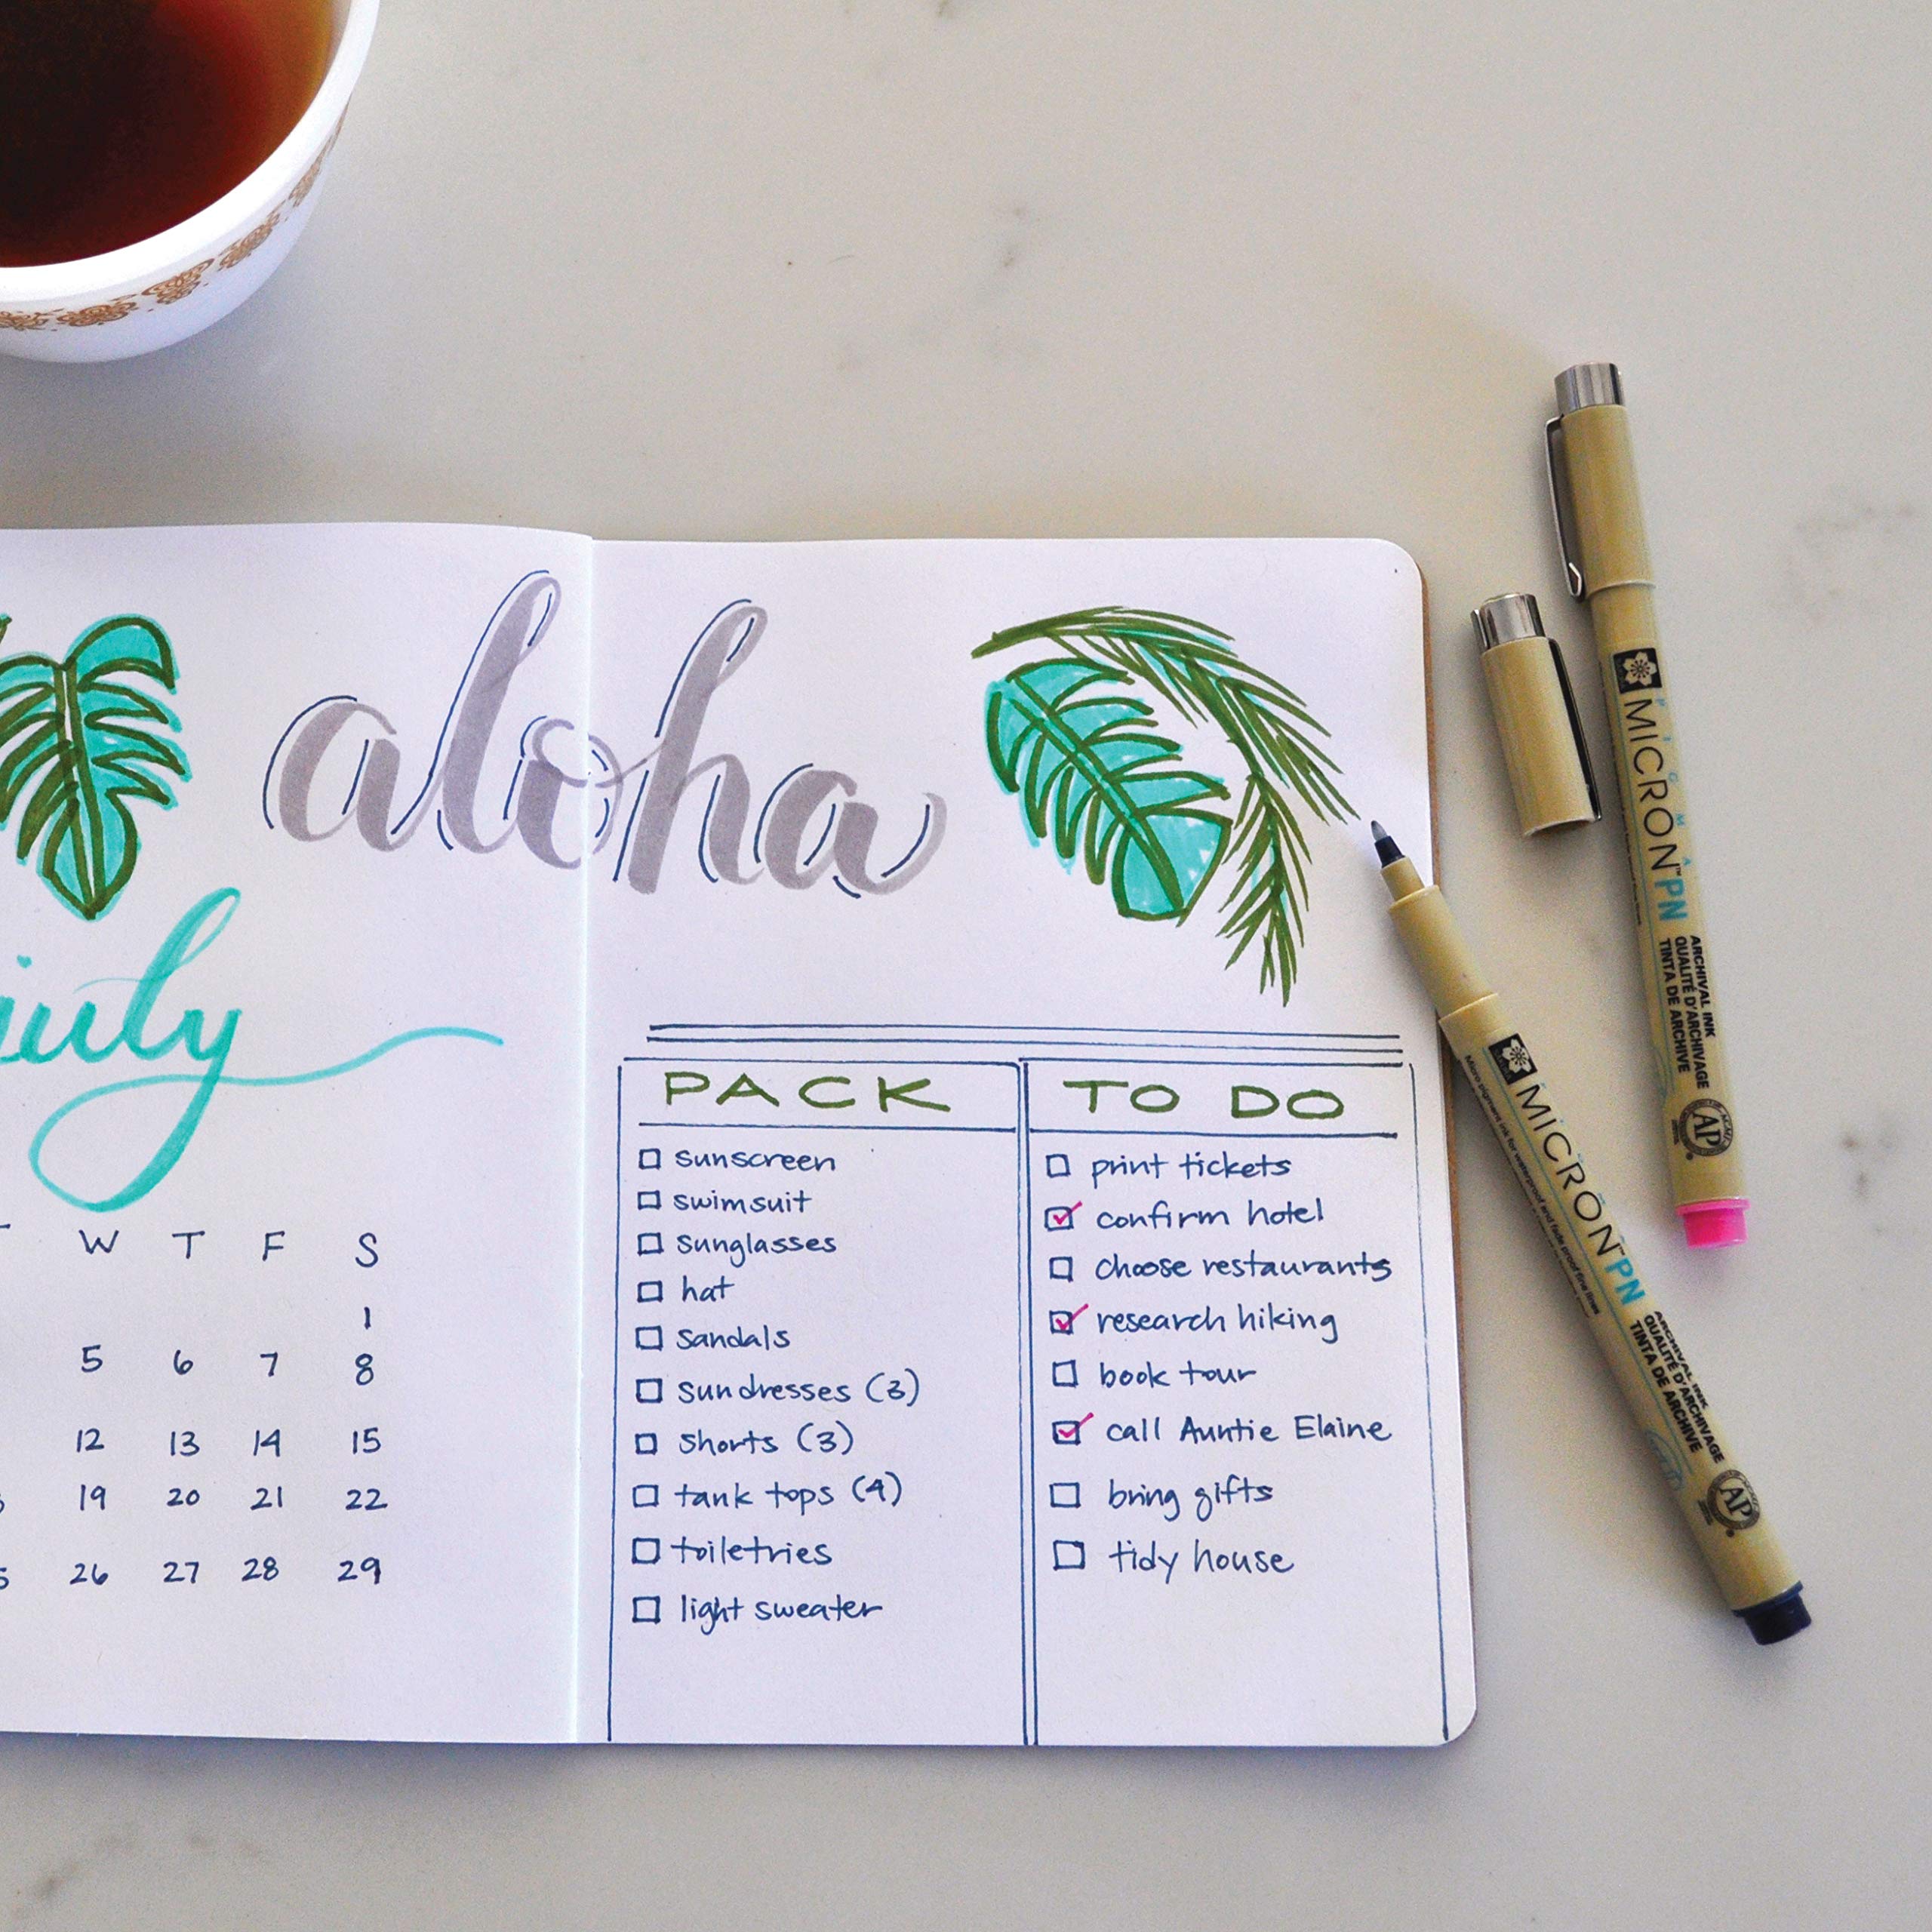 aloha
july
W T F S
1
5 6 7 8
12 13 14 15
19 20 21 22
26 27 28 29
PACK
sunscreen
swimsuit
sunglasses
hat
sandals
sundresses (3)
shorts (3)
tank tops (4)
toiletries
light sweater
TO DO
print tickets
confirm hotel
choose restaurants
research hiking
book tour
call Auntie Elaine
bring gifts
tidy house
PIGMA
MICRON™ PN
ARCHIVAL INK
QUALITÉ D'ARCHIVAGE
TINTA DE ARCHIVE
AP
Micro pigment ink for waterproof and fade proof fine lines
MICRON™ PN
ARCHIVAL INK
QUALITÉ D'ARCHIVAGE
TINTA DE ARCHIVE
AP